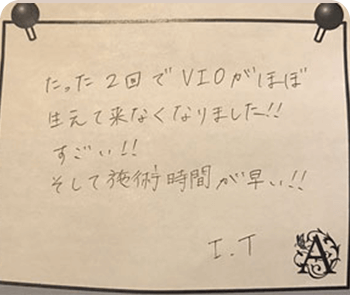 たった2回でVIOがほぼ
生えて来なくなりました!!
すごい!!
そして施術時間が早い!!
I.T
A